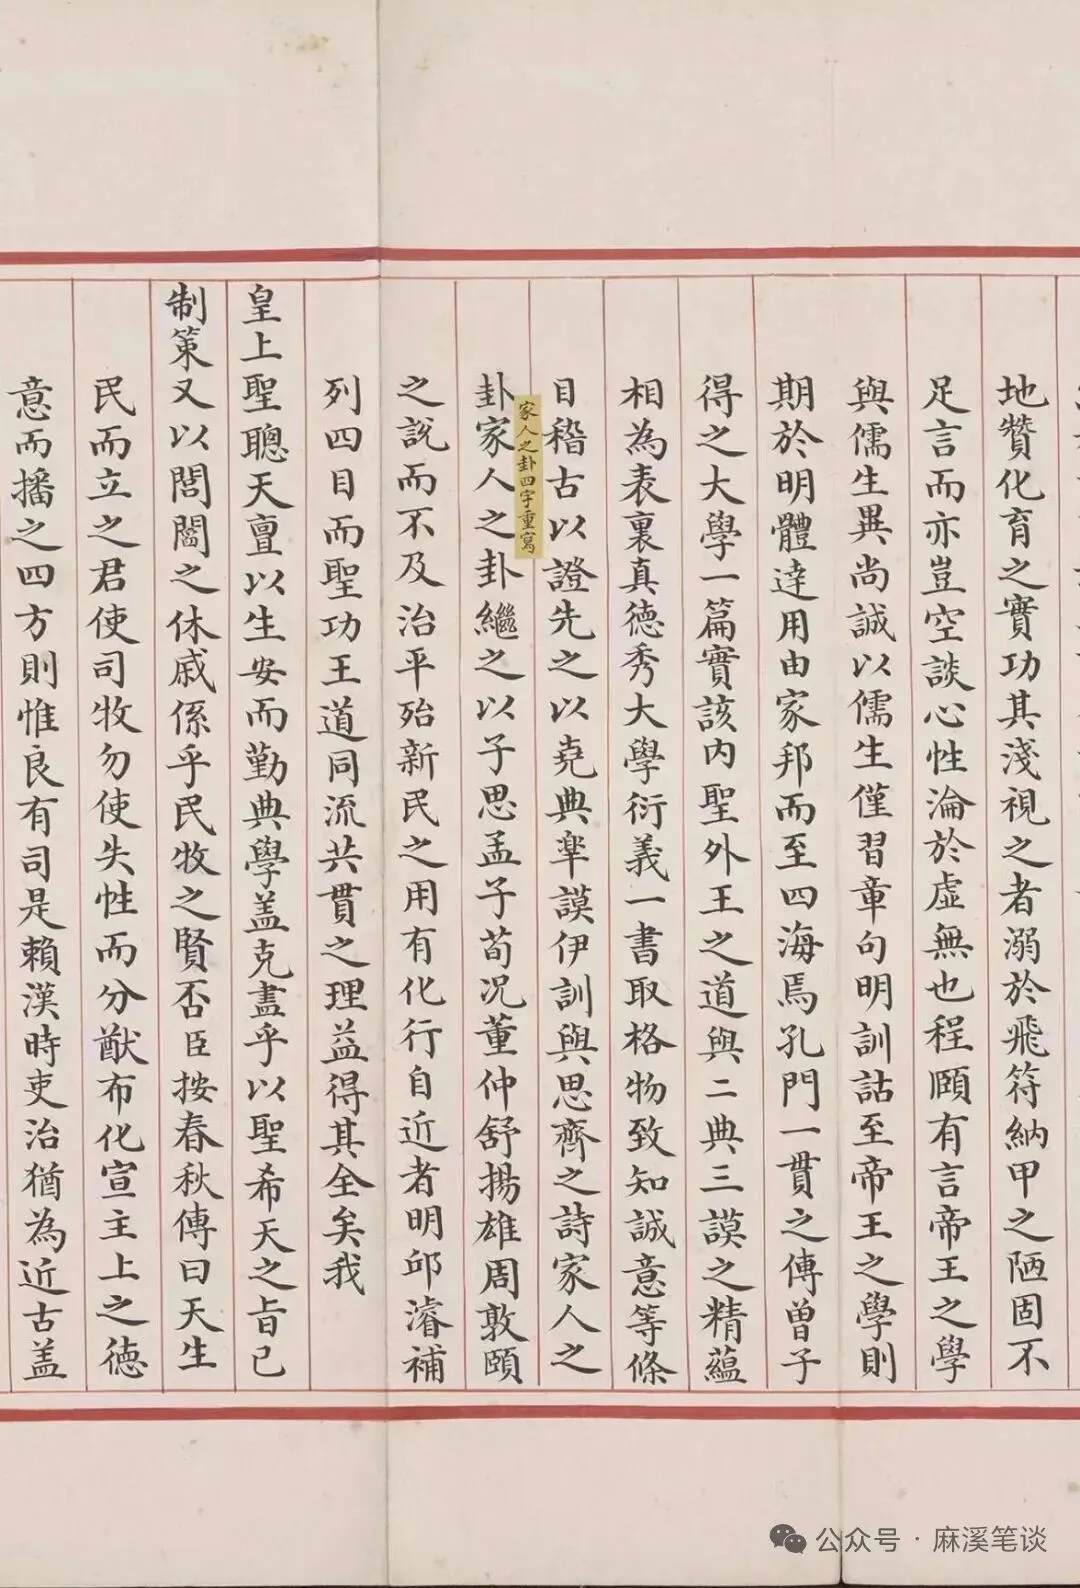 地贊化育之實功其淺視之者溺於飛符納甲之陋固不
足言而亦豈空談心性淪於虛無也程頤有言帝王之學
與儒生異尚誠以儒生僅習章句明訓詁至帝王之學則
期於明體達用由家邦而至四海焉孔門一貫之傳曾子
得之大學一篇實該內聖外王之道與二典三謨之精蘊
相為表裏真德秀大學衍義一書取格物致知誠意等條
目稽古以證先之以堯典臯謨伊訓與思齊之詩家人之
家人之卦四字重寫
卦家人之卦繼之以子思孟子荀況董仲舒揚雄周敦頤
之說而不及治平殆新民之用有化行自近者明邱濬補
列四目而聖功王道同流共貫之理益得其全矣我
皇上聖聰天亶以生安而勤典學盖克盡乎以聖希天之旨已
制策又以閭閻之休戚係乎民牧之賢否臣按春秋傳曰天生
民而立之君使司牧勿使失性而分猷布化宣主上之德
意而播之四方則惟良有司是賴漢時吏治猶為近古盖
公众号·麻溪笔谈